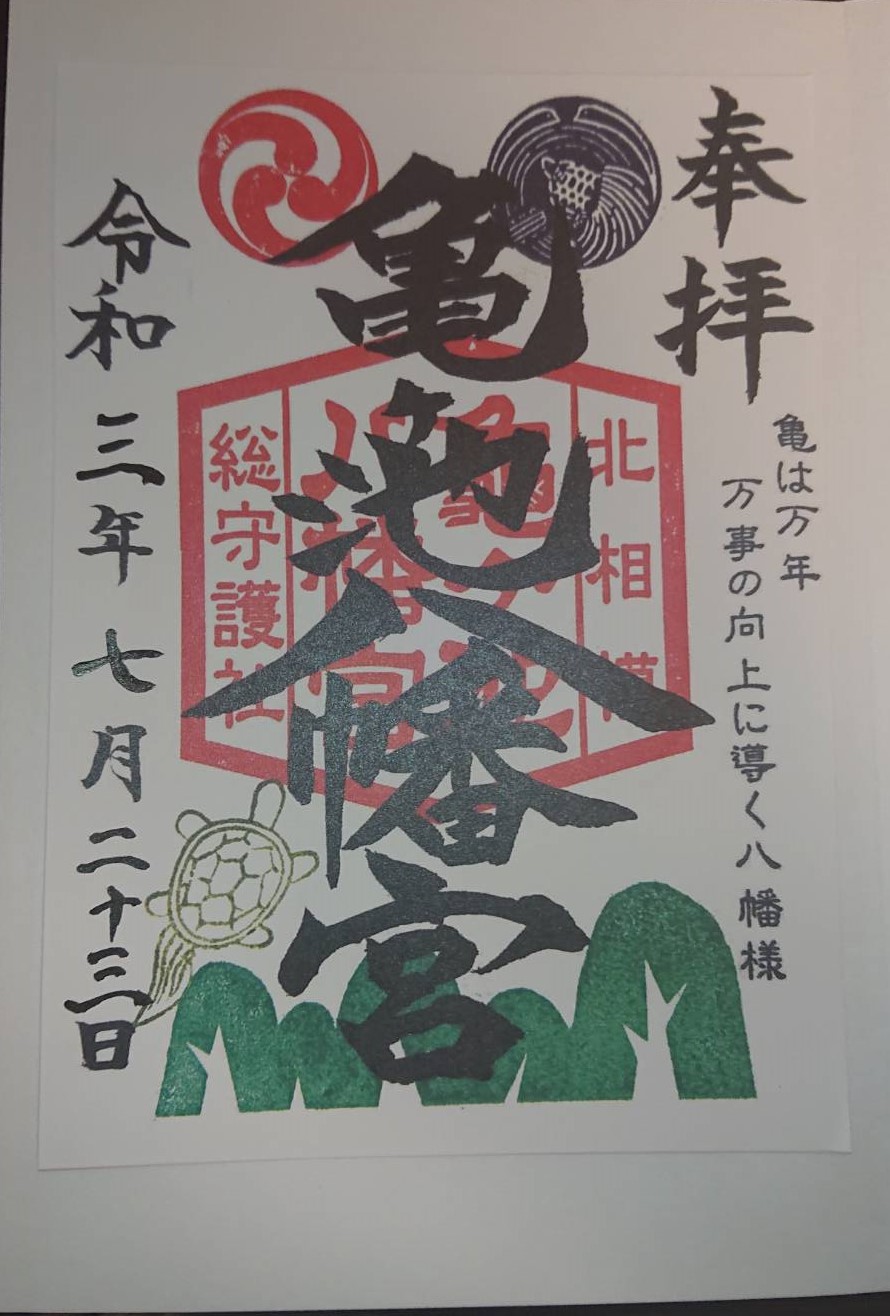 奉拝
亀は万年
万事の向上に導く八幡様
亀池八幡宮
北相模
亀ヶ池
八幡宮
総守護社
令和三年七月二十三日